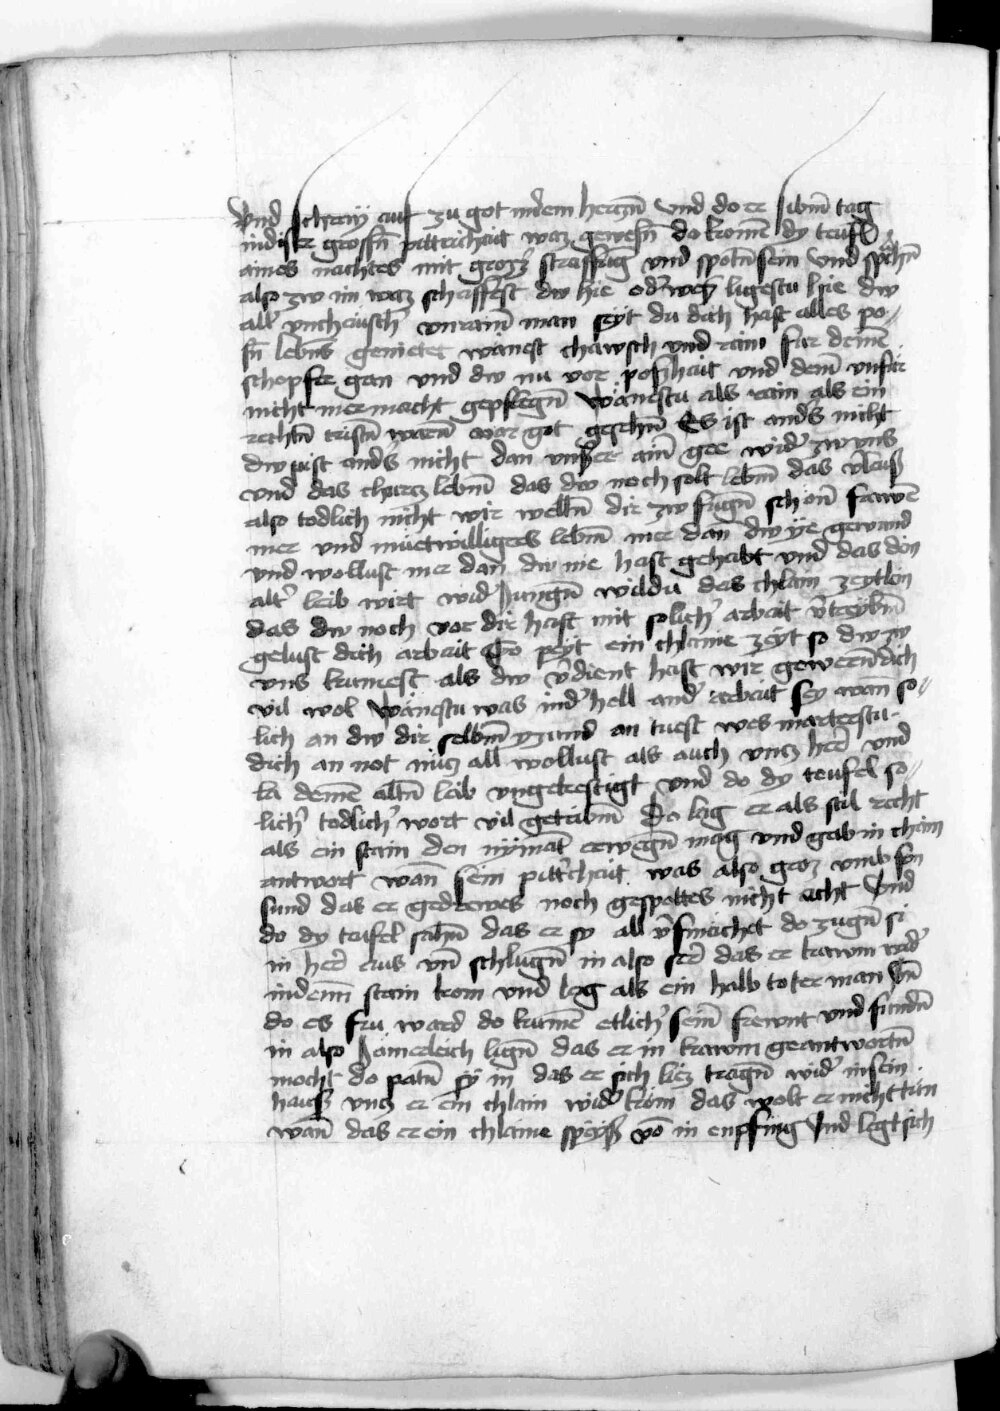 Vnd schray auf zu got in dem herczn̄ vnd do er sibm̄ tag
in diser grossn̄ pittrichait waz gewesn̄ do komen̄ dy teufl
aines nachtes mit grozz̕ straffūg vnd spotn̄ sein vnd sp̄chn̄
also zw im waz schaffest dw hie od̕ weß ligestu hie dw
all̕ vncheusch̕ vnrain̄ man seyt du dich hast alles po⸗
sn̄ lebn̄s genietet wänest chawsch vnd rain fur deinē
schopfer gan vnd dw nu vor poshait vnd dein̄ vnfür
nicht mer macht gepflegn̄ Wänestu als rain als ein
rechtn̄ cristn̄ warn̄ vor got gesehn̄ Es ist and̕s nicht
dw pist and̕s nicht dan vnser ain̄ gee wid̕ zw vns
vnd das churcz lebm̄ das dw noch solt lebm̄ das v̄leuß
also todlich nicht wir welln̄ dir zw fugn̄ schon̄ frawē
mer vnd müetwilligers lebm̄ mer dan̄ dw ye gewand
vnd wollust mer dan̄ dw nie hast gehabt vnd das din
alt̕ leib wirt wid̕ Jungn̄ wildu das chlain zeytlein
das dw noch vor dir hast mit solich̕ arbait v̄treybm̄
gelust dich arbait So peyt ein chlaine zeyt so dw zw
vns kumest als dw v̄dient hast wir gewern̄ dich
vil wol Wänestu was in d̕ hell and̕ arbait sey wan̄ so⸗
lich an dw dir selbm̄ yzund an tuest wes marterstu
dich an not nücz all wollust als auch vncz her̄ vnd
la deinē altn̄ leib vngekestigt vnd do dy teufel so⸗
lich̕ todlich̕ wort vil getribm̄ Do lag er als stil recht
als ein stain den nÿmāt erwegn̄ mag vnd gab in chain
antwort wan̄ sein pitt̕chait was also groz vmb sein
sund das er gedrewes noch gespottes nicht acht Vnd
do dy teufel sahn̄ das er sy all v̄smächet do zugn̄ si
in her̄ aus vn̄ schlugn̄ in also ser̄ das er kawm wid̕
in den̄ stain kom vnd lag als ein halb toter man Vn̄
do es fru ward do kumē etlich̕ sein̄ frewnt vnd fundn̄
in also Jämerleich lign̄ das er in kawm geantwortn̄
mocht do patn̄ sy in das er sich liez tragn̄ wid̕ in sein
hauß vncz er ein chlain wid̕ köm das wolt er nicht tün
wan̄ das er ein chlaine speyß vō in enpfing Vnd legt sich